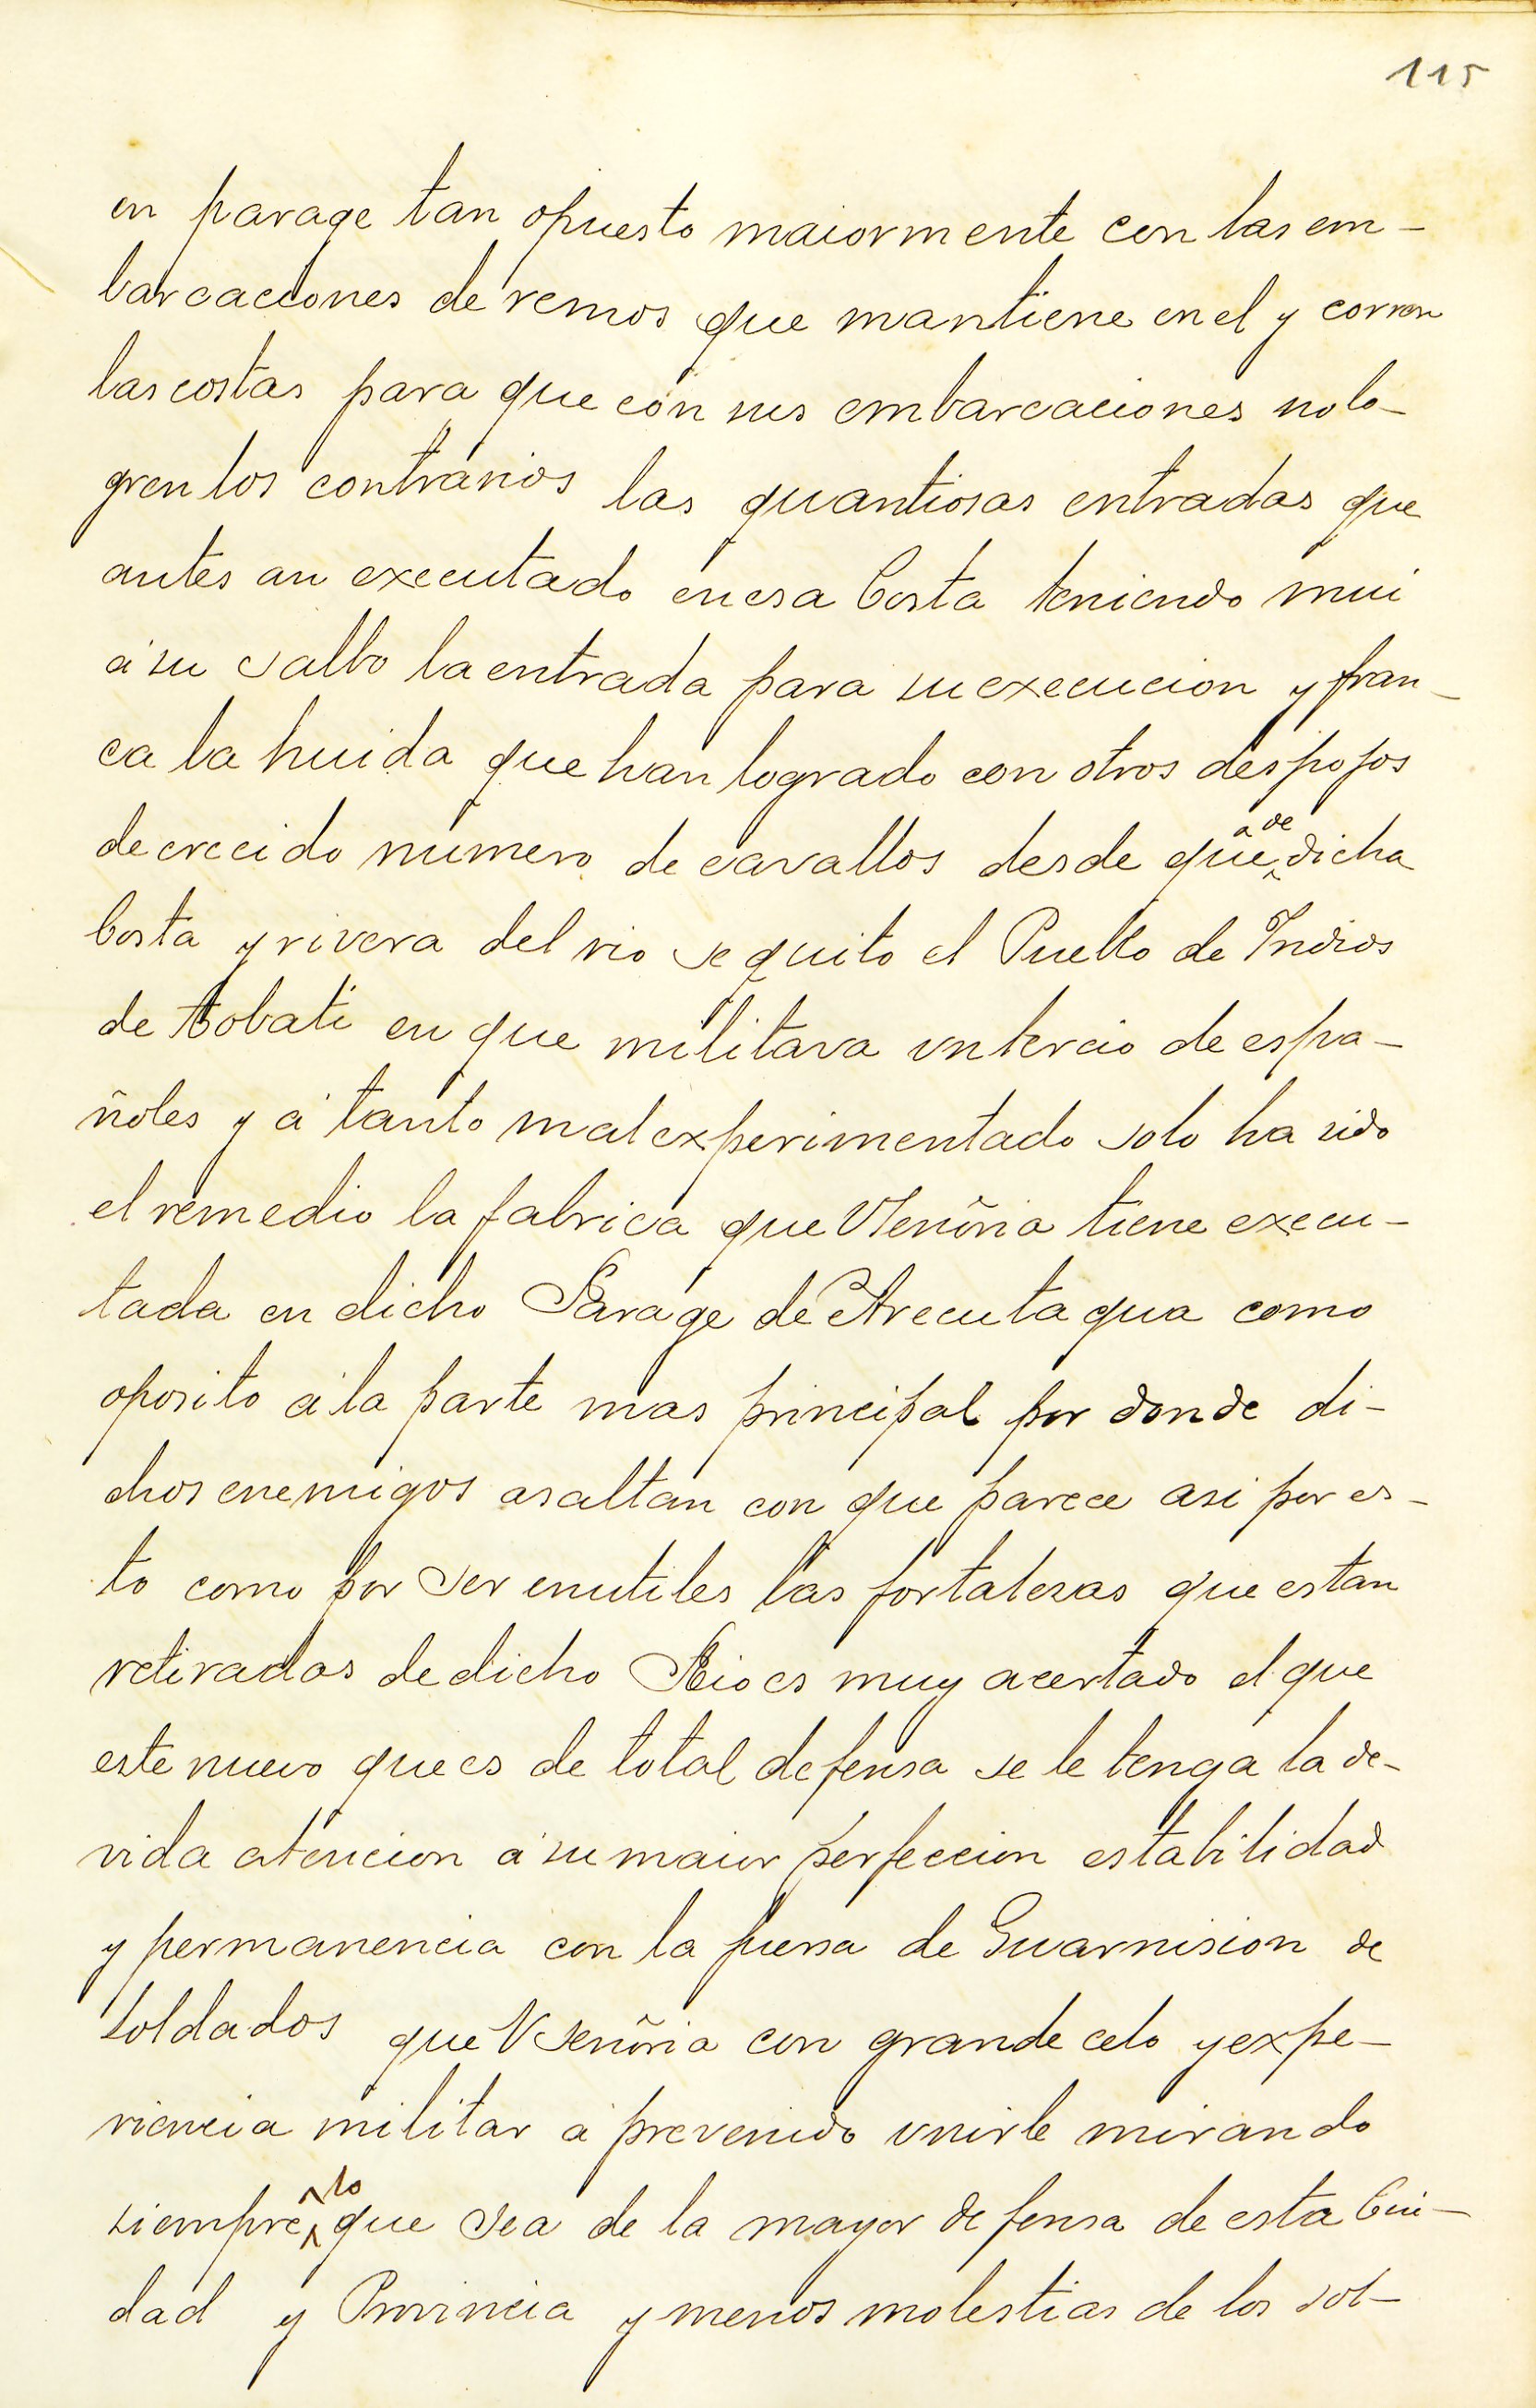 115
en parage tan opuesto maiormente con las em-
barcaciones de remos que mantiene en el y corren
las costas para que con sus embarcaciones no lo-
gren los contrarios las quantiosas entradas que
antes an executado en esa Costa teniendo mui
á su salbo la entrada para su execucion y fran-
ca la huida que han logrado con otros despojos
de crecido numero de cavallos desde que a de dicha
Costa y rivera del rio se quito el Pueblo de Indios
de Tobati en que militava un tercio de espa-
ñoles y á tanto mal experimentado solo ha sido
el remedio la fabrica que VSeñoria tiene execu-
tada en dicho Parage de Arecutagua como
oposito á la parte mas principal por donde di-
chos enemigos asaltan con que parece asi por es-
to como por ser enutiles las fortalesas que estan
retiradas de dicho Rio es muy acertado el que
este nuevo que es de total defensa se le tenga la de-
vida atencion á su maior perfeccion estabilidad
y permanencia con la fuersa de Guarnision de
soldados que VSeñoria con grande celo y expe-
riencia militar á prevenido unirle mirando
siempre lo que sea de la mayor defensa de esta Ciu-
dad y Provincia y menos molestias de los sol-